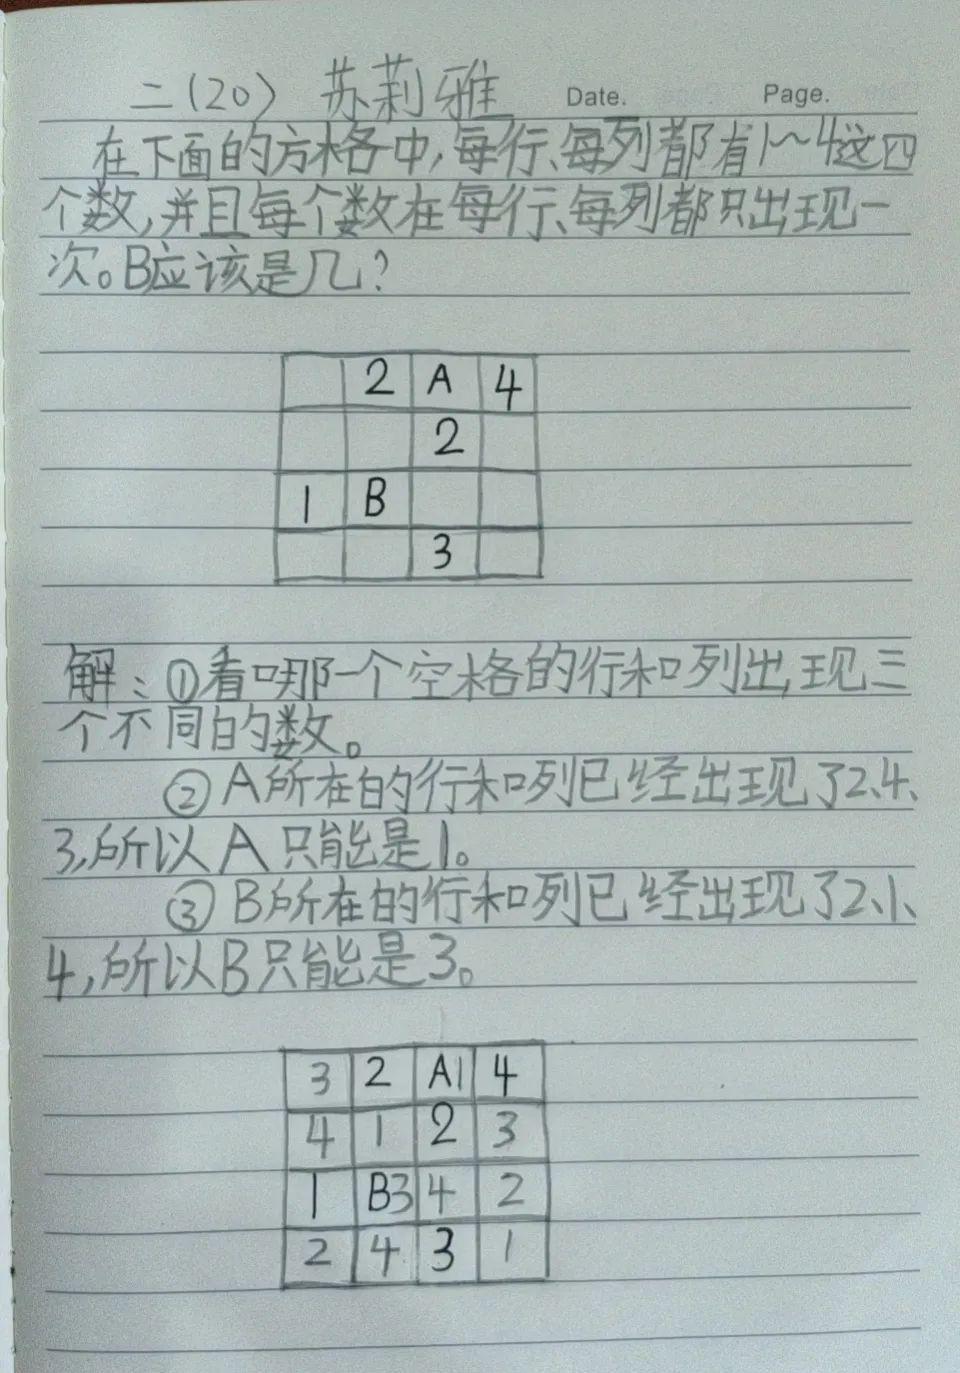 二(20) 苏莉雅 Date. Page.
在下面的方格中,每行、每列都有1~4这四
个数,并且每个数在每行、每列都只出现一
次。B应该是几?
2 A 4
2
1 B
3
解:①看哪一个空格的行和列出现三
个不同的数。
②A所在的行和列已经出现了2、4、
3,所以A只能是1。
③B所在的行和列已经出现了2、1、
4,所以B只能是3。
3 2 A1 4
4 1 2 3
1 B3 4 2
2 4 3 1